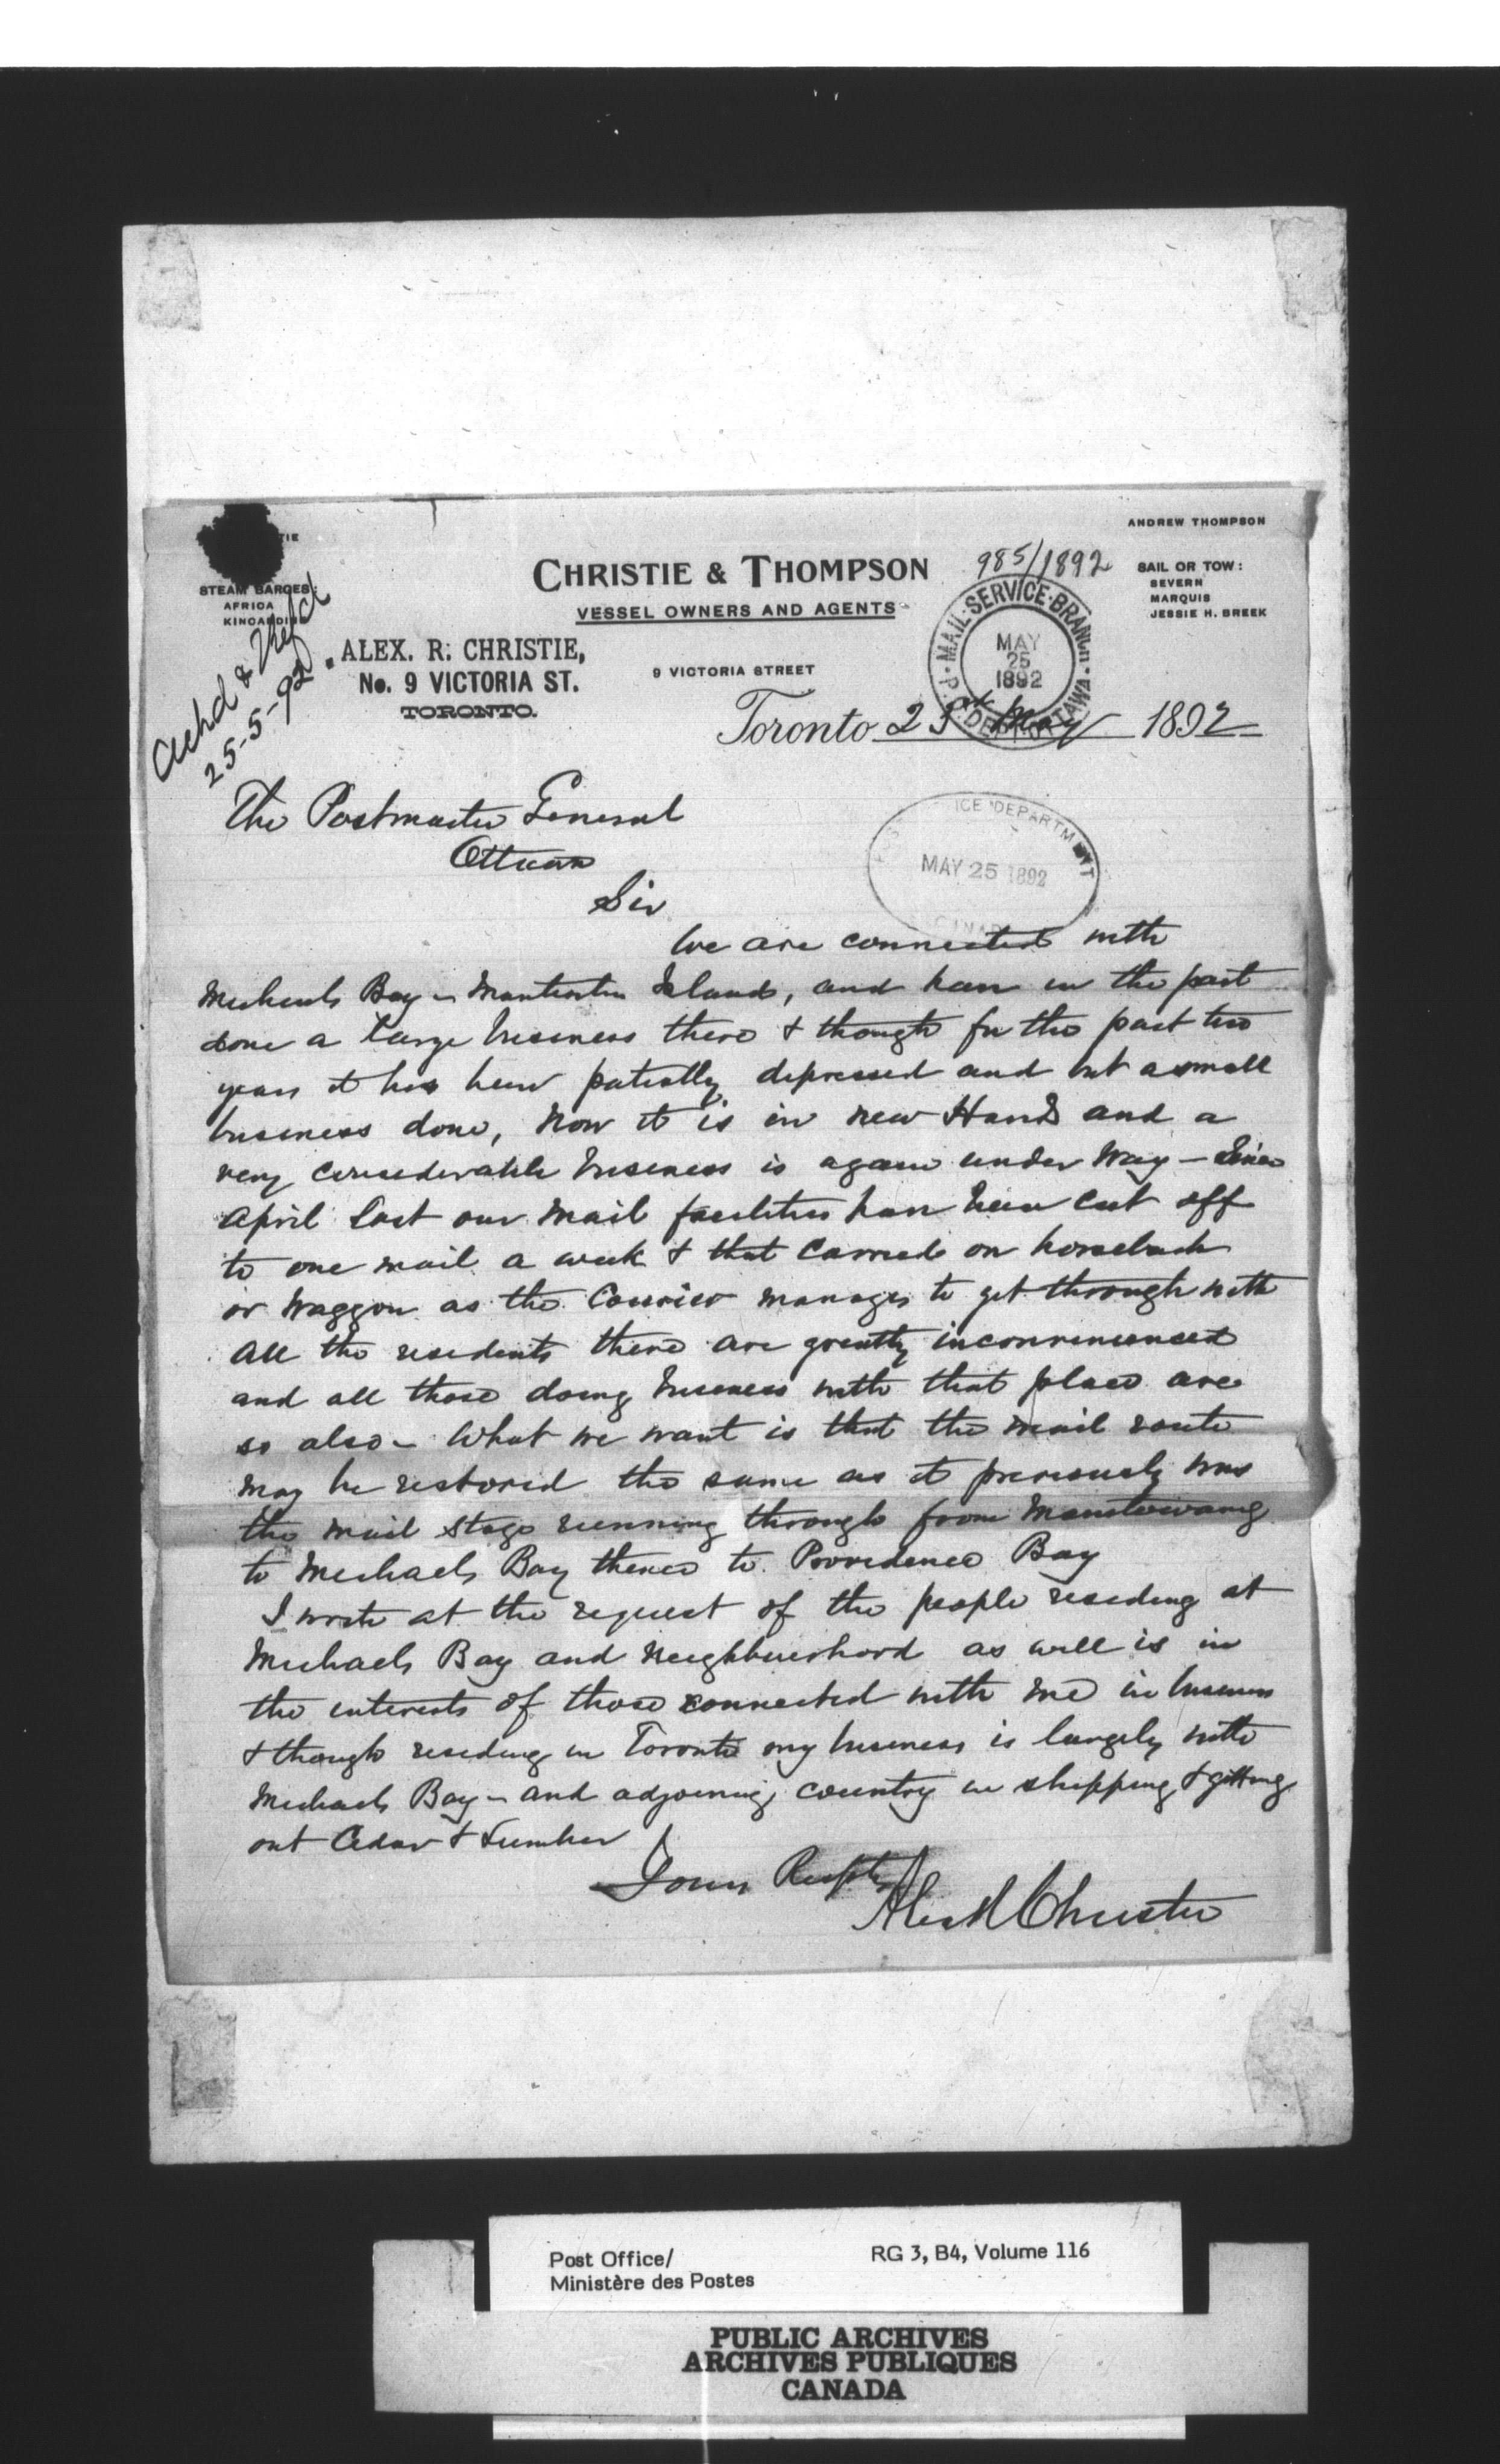 TIE
ANDREW THOMPSON
CHRISTIE & THOMPSON
985/1892
STEAM BARGES:
AFRICA
KINCARDINE
SAIL OR TOW:
SEVERN
MARQUIS
JESSIE H. BREEK
VESSEL OWNERS AND AGENTS
P.O. DEPT. MAIL SERVICE BRANCH OTTAWA
MAY
25
1892
Ackd & Refd
25-5-92
ALEX. R. CHRISTIE,
No. 9 VICTORIA ST.
TORONTO.
9 VICTORIA STREET
Toronto 25th May 1892
The Postmaster General
Ottawa
ICE DEPARTMENT
MAY 25 1892
Sir
We are connected with
Michaels Bay - Manitoulin Island, and have in the past
done a large business there & though for the past two
years it has been patially depressed and but a small
business done, now it is in new Hands and a
very considerable business is again under way - Since
April last our mail facilities have been cut off
to one mail a week & that carried on horseback
or waggon as the Courier manages to get through with
all the residents there are greatly inconvenienced
and all those doing business with that place are
so also - What we want is that the mail route
may be restored the same as it previously was
the mail stage running through from Manitowaning
to Michaels Bay thence to Providence Bay
I write at the request of the people residing at
Michaels Bay and neighbourhood as well is in
the interests of those connected with me in business
& though residing in Toronto my business is largely with
Michaels Bay - and adjoining country in shipping & getting
out Cedar & Lumber
Yours Respty
Alex R Christie
Post Office/
Ministère des Postes
RG 3, B4, Volume 116
PUBLIC ARCHIVES
ARCHIVES PUBLIQUES
CANADA